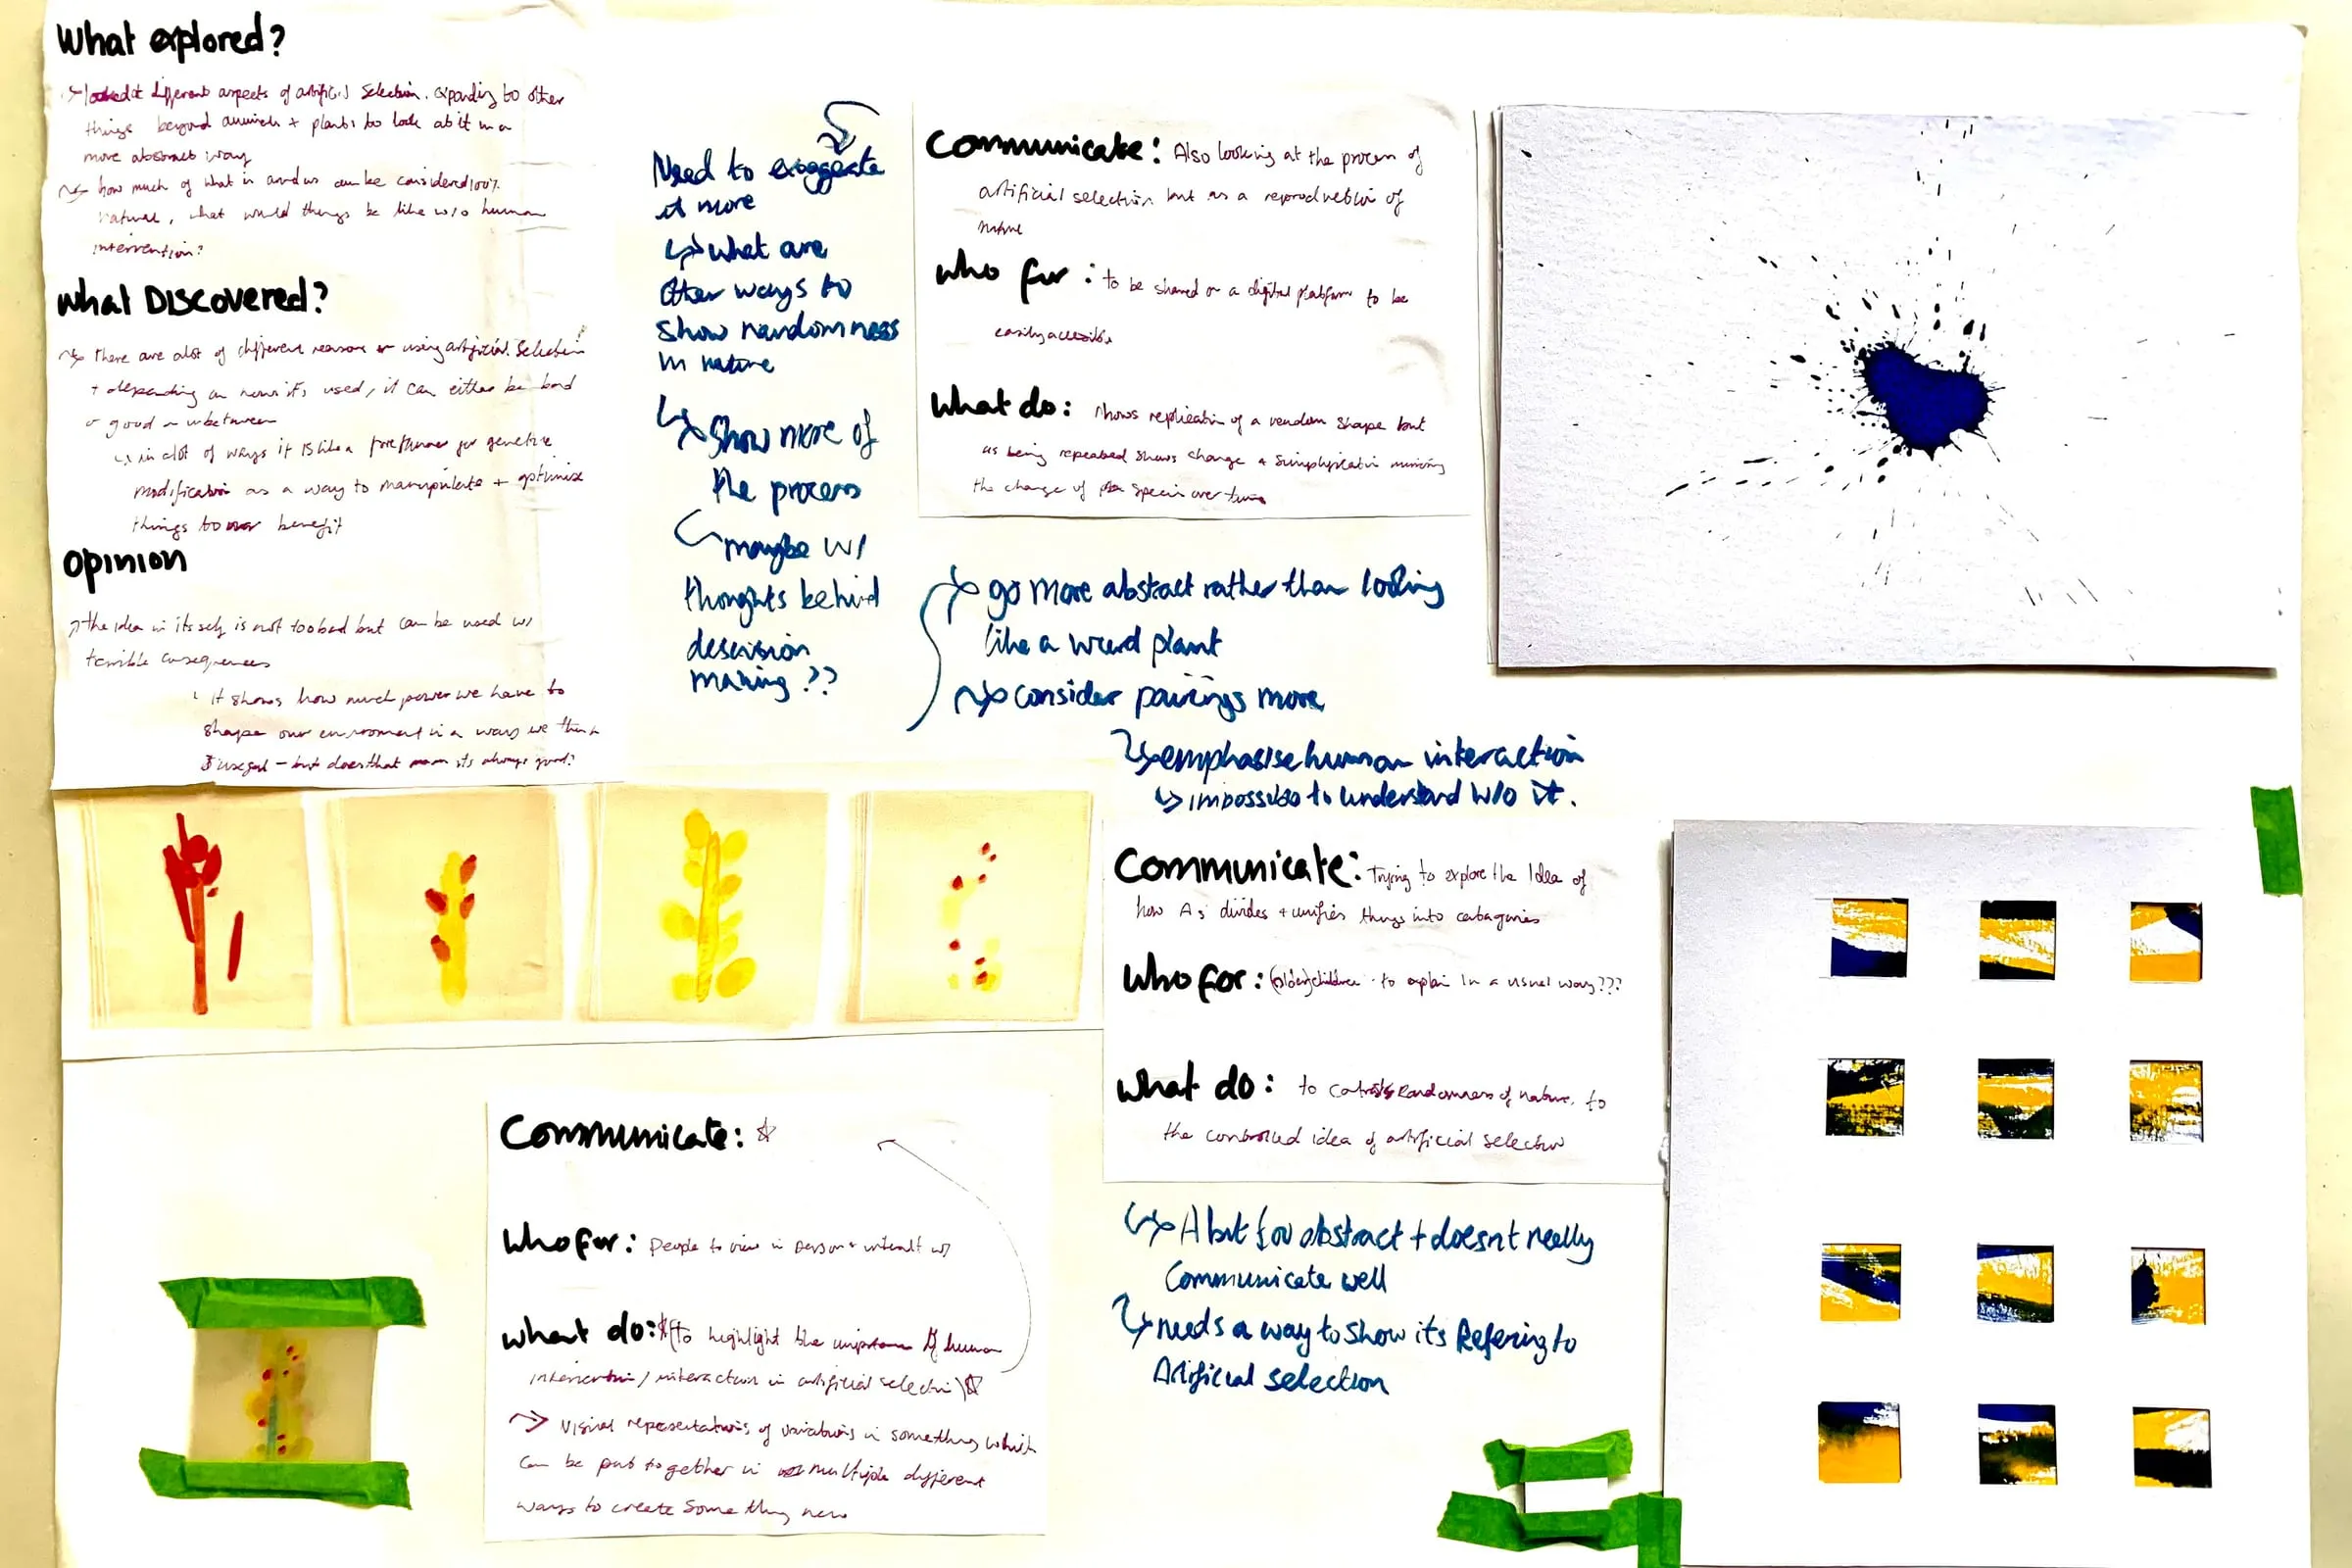 What explored?
looked at different aspects of artificial selection. expanding to other
things beyond animals + plants to look at it in a
more abstract way
how much of what is around us can be considered 100%
natural, what would things be like w/o human
intervention?
What DISCOVERED?
there are alot of different reasons or using artificial selection
+ depending on how it's used, it can either be bad
or good or inbetween
in alot of ways it is like a forerunner for genetic
modification as a way to manipulate + optimise
things to our benefit
Opinion
the idea in itself is not too bad but can be used w/
terrible consequences
it shows how much power we have to
shape our enviroment in a ways we think
is useful – but does that mean its always good?
Need to exaggerate
it more
what are
other ways to
show randomness
in nature
show more of
the process
maybe w/
thoughts behind
descision
making ??
Communicate: Also looking at the process of
artificial selection but as a reproduction of
nature
who for: to be shared on a digital platform to be
easily accessible
What do: shows replication of a random shape but
as being repeated shows change + simplification mimicing
the change of species over time
go more abstract rather than looking
like a weird plant
consider pairings more
emphasise human interaction
impossible to understand w/o it.
Communicate: Trying to explore the idea of
how AS divides + unifies things into catagories
Who for: (older) children - to explain in a usual way???
What do: to contrast randomness of nature, to
the controlled idea of artificial selection
A bit too abstract + doesnt really
communicate well
needs a way to show its Refering to
Artificial selection
Communicate: ☆
who for: People to view in person + interact w/
what do: ☆(to highlight the importance of human
intervention / interaction in artificial selection)☆
Visual representations of variations in something which
can be put together in multiple different
ways to create something new